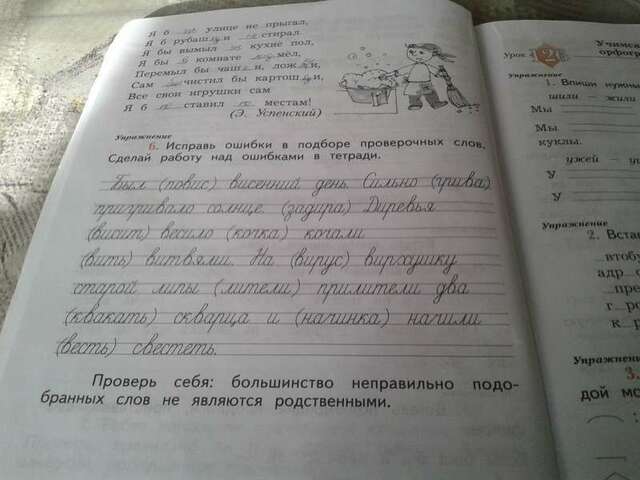 Я б улице не прыгал,
Я б рубаш и стирал
Я бы вымыл кухне пол,
Я бы комнате мёл,
Перемыл бы чаш и, лож и,
Сам чистил бы картош и,
Все свои игрушки сам
Я б ставил местам!
(Э. Успенский)
Упражнение
6. Исправь ошибки в подборе проверочных слов.
Сделай работу над ошибками в тетради.
Был (повис) висенний день. Сильно (грива)
пригривало солнце. (задира) Диревья
(висит) весило (кочка) кочали
(вить) витвями. На (вирус) вирхушку
старой липы (лители) прилители два
(квакать) скварца и (начинка) начили
(весть) свестеть.
Проверь себя: большинство неправильно подо-
бранных слов не являются родственными.
Урок 2
Учимся
орфогр
Упражнение
1. Впиши нужны
шили — жили
Мы
Мы
куклы.
ужей — у
У
У
Упражнение
2. Вста
втобу
адр о
пре
г ро
к р
Упражнени
3.
дой мс